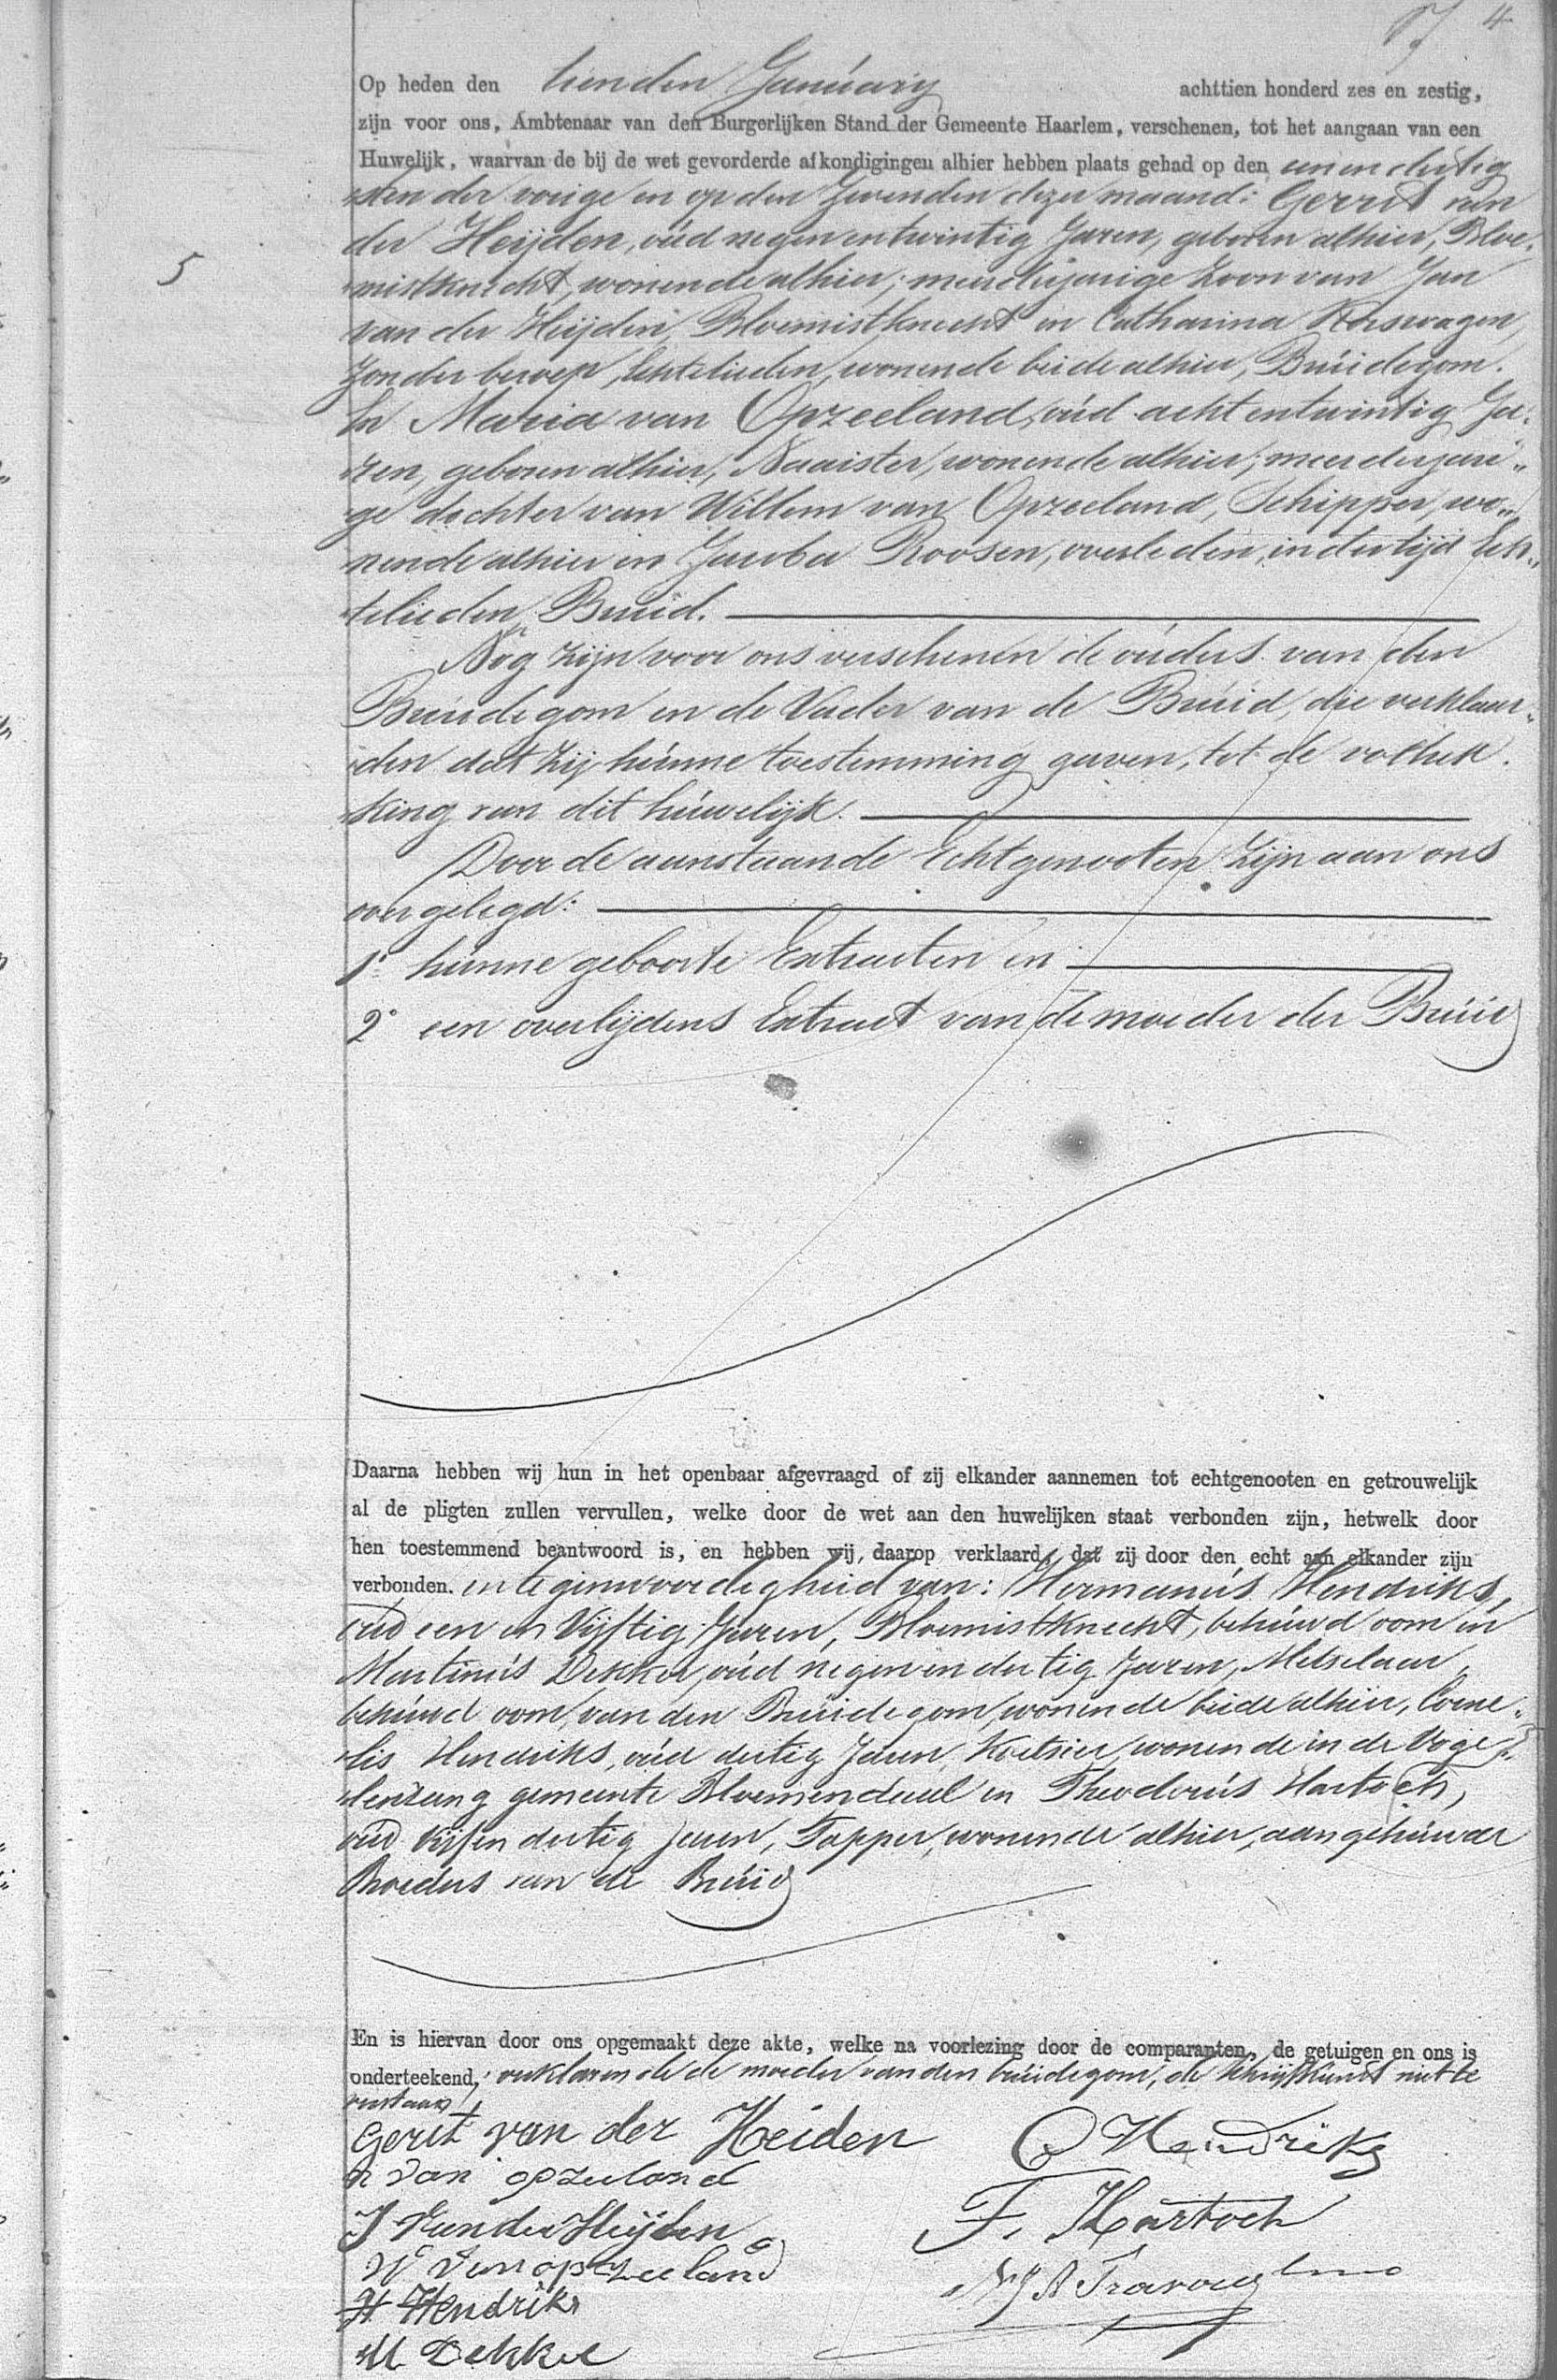 4
Op heden den tienden Januarij achttien honderd zes en zestig,
zijn voor ons, Ambtenaar van den Burgerlijken Stand der Gemeente Haarlem, verschenen, tot het aangaan van een
Huwelijk, waarvan de bij de wet gevorderde afkondigingen alhier hebben plaats gehad op den een en dertig
sten der vorige en op den Zevenden dezer maand: Gerrit van
der Heijden, oud negen en twintig Jaren, geboren alhier, Bloe-
5
mistknecht, wonende alhier; meerderjarige Zoon van Jan
van der Heijden, Bloemistknecht en Catharina Korswagen,
Zonder beroep, Echtelieden, wonende beide alhier, Bruidegom.
En Maria van Opzeeland, oud acht en twintig Ja-
ren, geboren alhier, Naaister, wonende alhier; meerderjari-
ge dochter van Willem van Opzeeland, Schipper, wo-
nende alhier en Jacoba Roosen, overleden, in der tijd Ech-
telieden, Bruid.
Nog zijn voor ons verschenen de ouders van den
Bruidegom en de Vader van de Bruid, die verklaar-
den dat zij hunne toestemming gaven, tot de voltrek-
king van dit huwelijk.
Door de aanstaande Echtgenooten zijn aan ons
overgelegd:
1° hunne geboorte Extracten en
2° een overlijdens Extract van de moeder der Bruid
Daarna hebben wij hun in het openbaar afgevraagd of zij elkander aannemen tot echtgenooten en getrouwelijk
al de pligten zullen vervullen, welke door de wet aan den huwelijken staat verbonden zijn, hetwelk door
hen toestemmend beantwoord is, en hebben wij, daarop verklaard, dat zij door den echt aan elkander zijn
verbonden. in tegenwoordigheid van: Hermanus Hendriks,
oud een en Vijftig Jaren, Bloemistknecht, behuwd oom en
Martinus Dekker, oud negen en dertig Jaren, Metselaar,
behuwd oom, van den Bruidegom, wonende beide alhier, Corne-
lis Hendriks, oud dertig Jaren, Koetsier, wonende in de Voge-
lenzang gemeente Bloemendaal en Theodorus Hartoch,
oud vijf en dertig jaren, Tapper, wonende alhier, aangehuwde
Broeders van de Bruid
En is hiervan door ons opgemaakt deze akte, welke na voorlezing door de comparanten, de getuigen en ons is
onderteekend, verklarende de moeder van den bruidegom, de schrijfkunst niet te
verstaan
Gerit van der Heiden
C Hendriks
van opzeeland
J Van der Heijden
F. Hartoch
W van opzeeland
H Hendriks
M Dekker